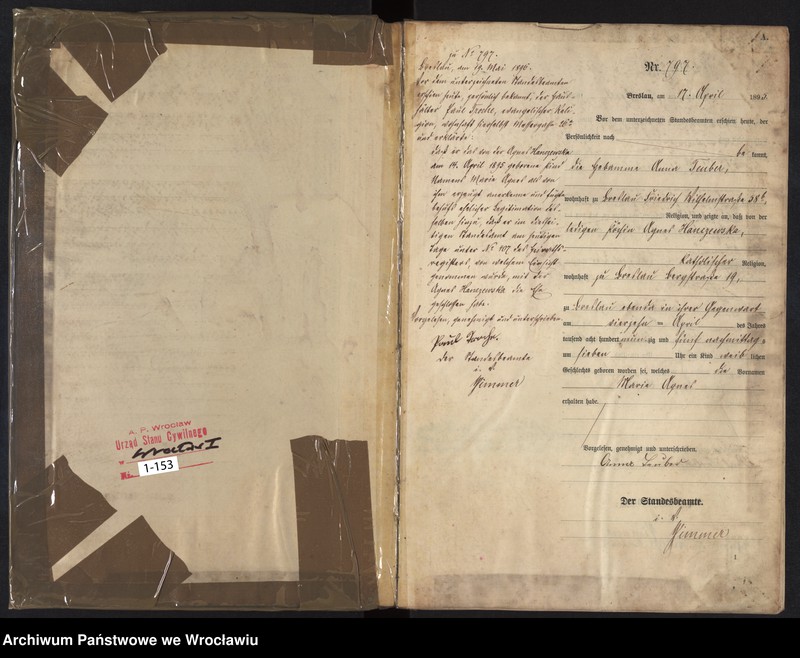 A. P. Wrocław
Urząd Stanu Cywilnego
w Wrocław I
Nr. 1-153
zu No 797.
Breslau, am 19. Mai 1896.
Vor dem unterzeichneten Standesbeamten
erschien heute, persönlich bekannt, der Haus-
hälter Paul evangelischer Reli-
gion, wohnhaft hierselbst Messergasse
und erklärte:
daß er das von der Agnes Hanczewska
am 14. April 1895 geborene Kind
Namens Maria Agnes als von
ihm erzeugt anerkenne und fügte
behufs ehelicher Legitimation des-
selben hinzu, daß er im diessei-
tigen Standesamt am heutigen
Tage unter No 407 des Heiraths-
registers, von welchem Einsicht
genommen wurde, mit der
Agnes Hanczewska die Ehe
geschlossen habe.
Vorgelesen, genehmigt und unterschrieben
Paul
Der Standesbeamte
i. V.
A.
Nr. 797.
Breslau, am 17. April 1895.
Vor dem unterzeichneten Standesbeamten erschien heute, der
Persönlichkeit nach
be kannt,
die Hebamme Anna Teuber,
wohnhaft zu Breslau Friedrich Wilhelmstraße 38b,
Religion, und zeigte an, daß von der
ledigen Köchin Agnes Hanczewska,
katholischer Religion,
wohnhaft zu Breslau Bergstraße 19,
zu Breslau ebenda in ihrer Gegenwart
am vierzehn = April des Jahres
tausend acht hundert neunzig und fünf nachmittags
um sieben Uhr ein Kind weib lichen
Geschlechts geboren worden sei, welches die Vornamen
Maria Agnes
erhalten habe.
Vorgelesen, genehmigt und unterschrieben.
Anna Teuber
Der Standesbeamte.
i. V.
Archiwum Państwowe we Wrocławiu